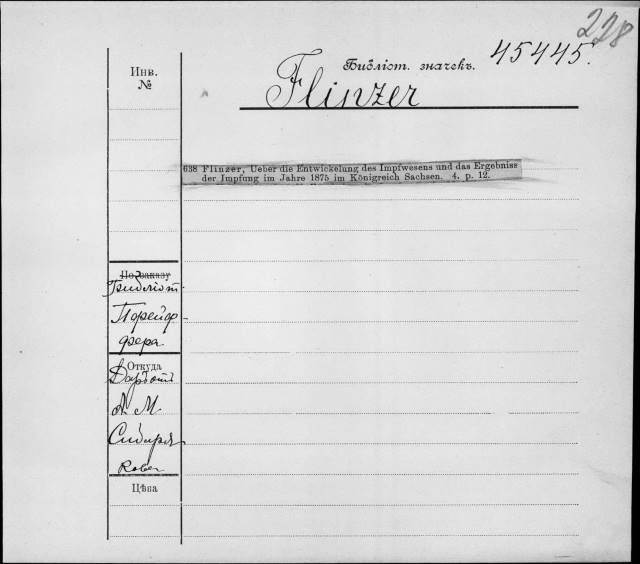 228
Инв.
№
Библіот. значекъ. 45445.
Flinzer
638 Flinzer, Ueber die Entwickelung des Impfwesens und das Ergebniss
der Impfung im Jahre 1875 im Königreich Sachsen. 4. p. 12.
По заказу
Библіот.
Порейф-
фера
Откуда
А. М.
Сибиря-
кова
Цѣна